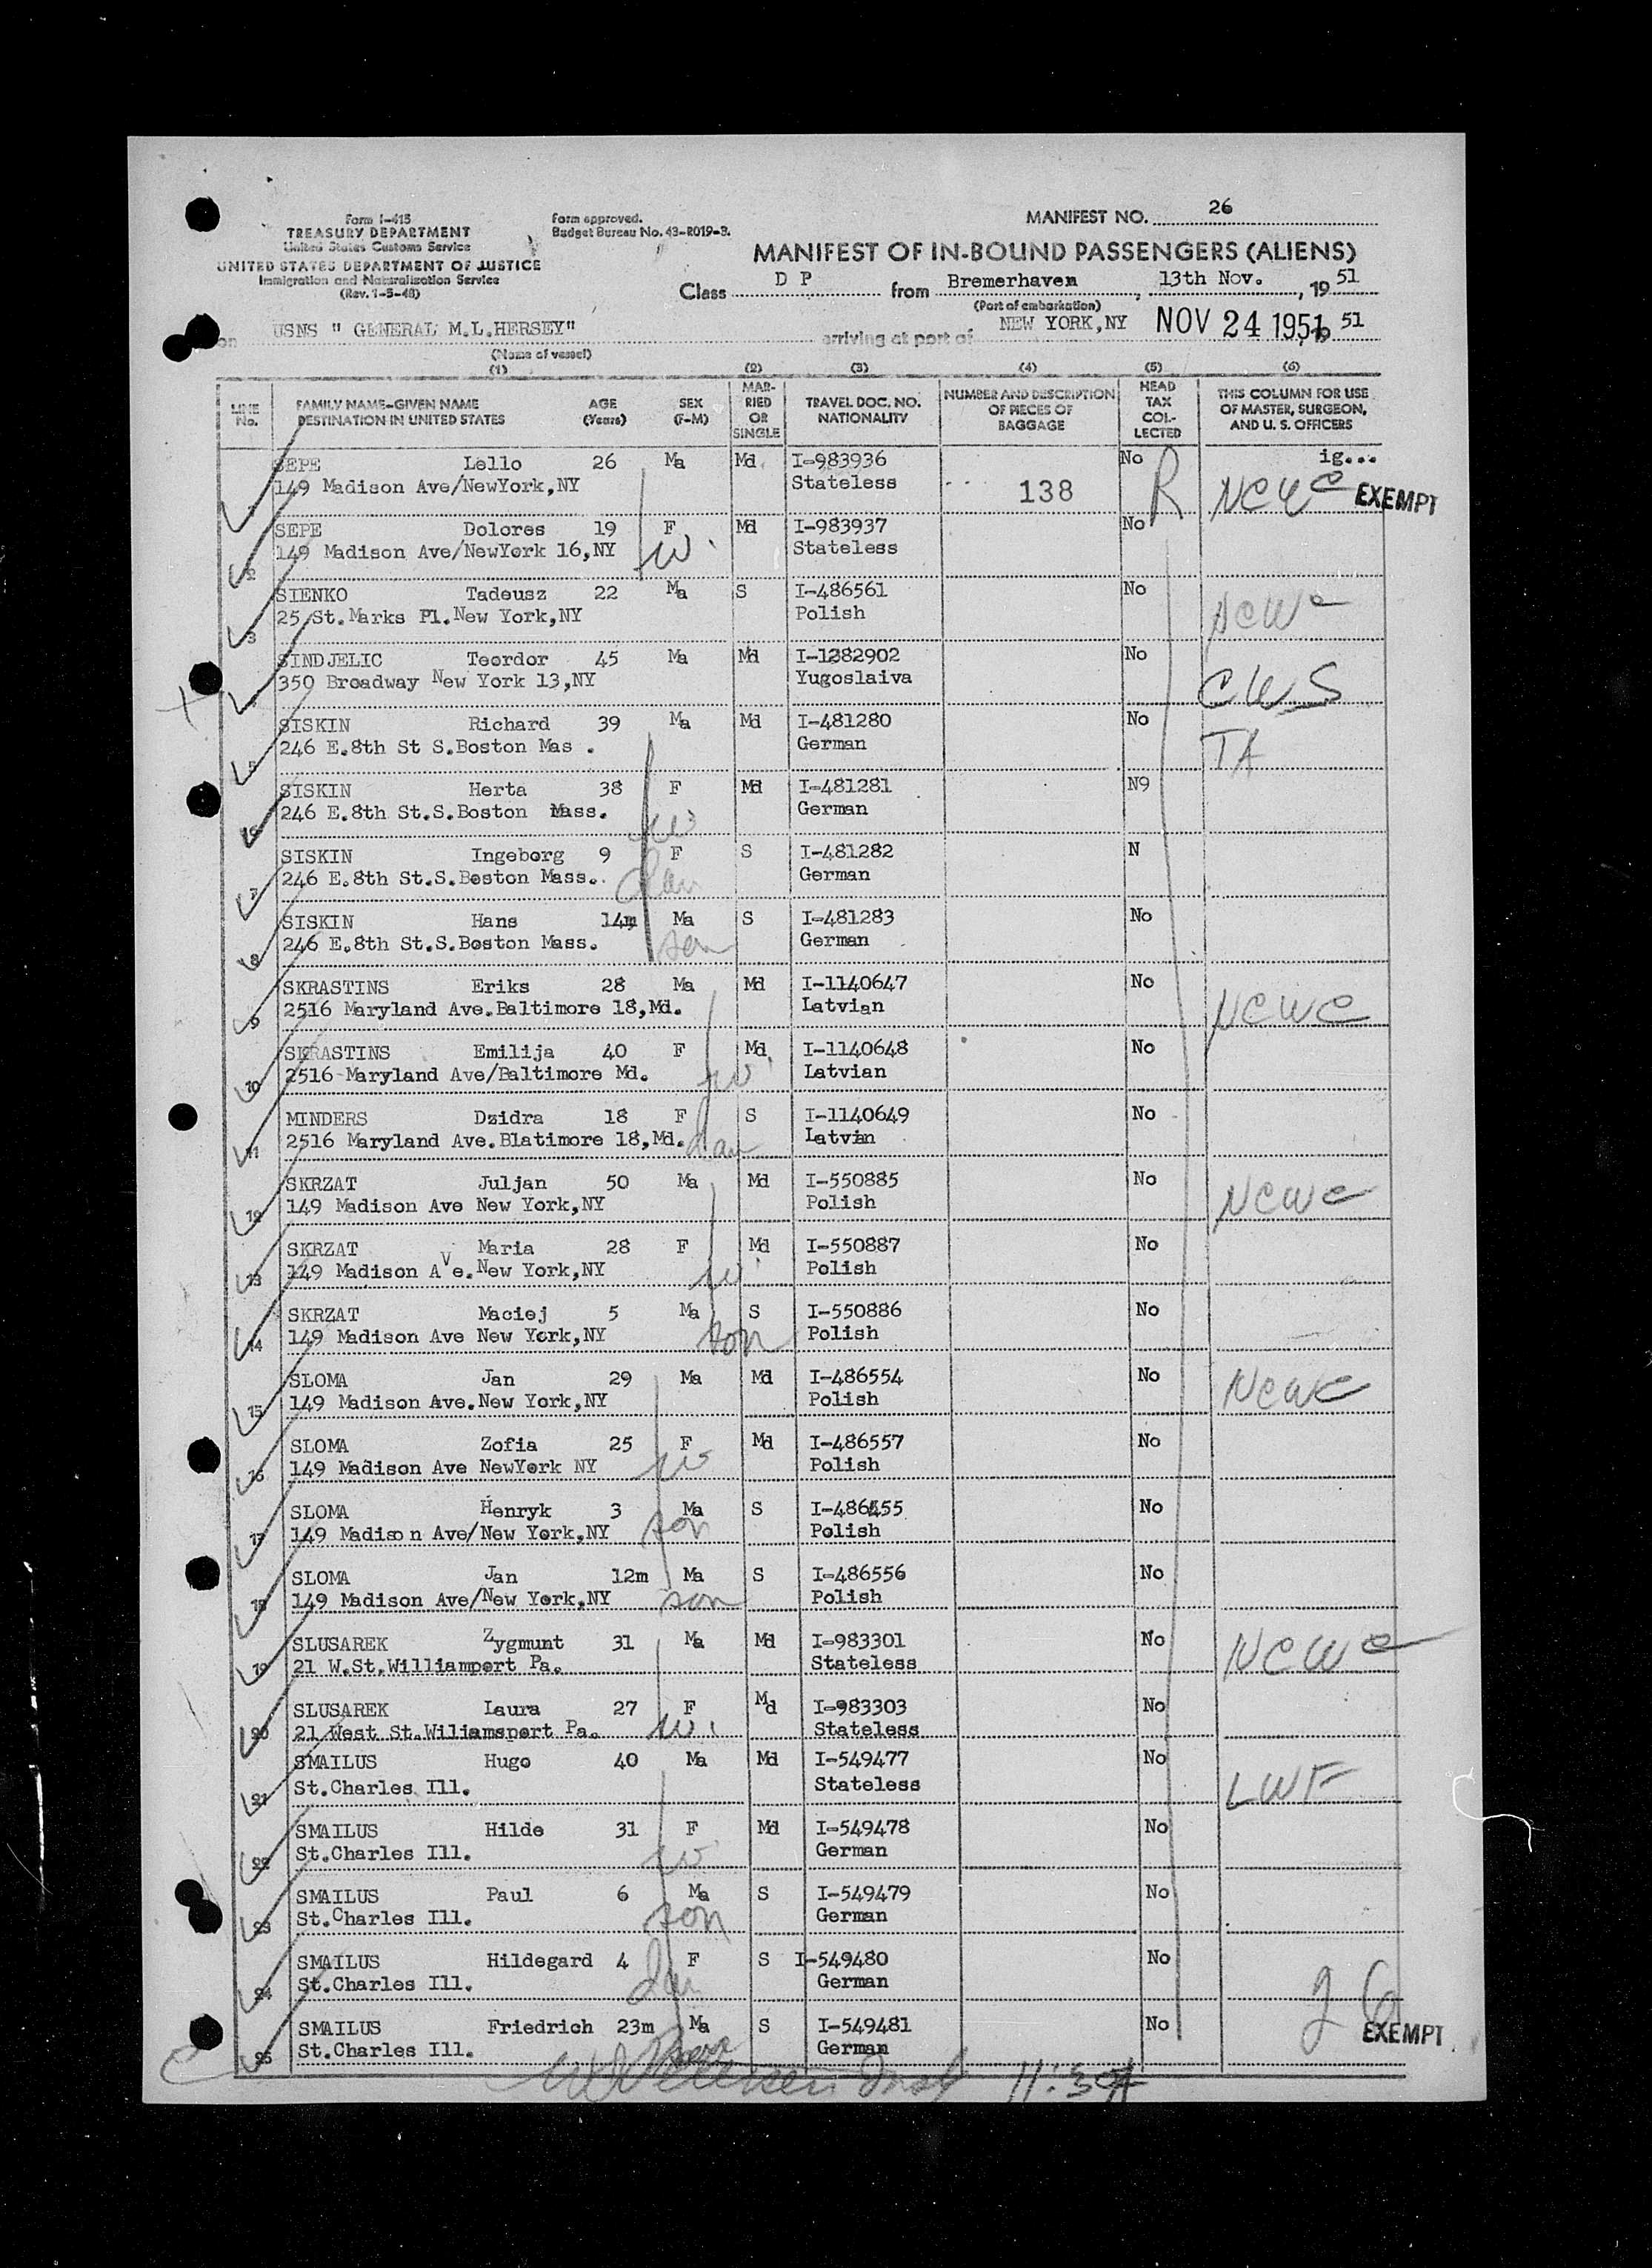 Form I-415
TREASURY DEPARTMENT
United States Customs Service
UNITED STATES DEPARTMENT OF JUSTICE
Immigration and Naturalization Service
(Rev. 1-5-48)
Form approved.
Budget Bureau No. 43-R019-3.
MANIFEST NO. 26
MANIFEST OF IN-BOUND PASSENGERS (ALIENS)
Class D P from Bremerhaven, 13th Nov. , 19 51
(Port of embarkation)
on USNS " GENERAL M.L.HERSEY" arriving at port of NEW YORK,NY NOV 24 1951 19 51
(Name of vessel)
(1) (2) (3) (4) (5) (6)
LINE No. FAMILY NAME-GIVEN NAME DESTINATION IN UNITED STATES AGE (Years) SEX (F-M) MARRIED OR SINGLE TRAVEL DOC. NO. NATIONALITY NUMBER AND DESCRIPTION OF PIECES OF BAGGAGE HEAD TAX COLLECTED THIS COLUMN FOR USE OF MASTER, SURGEON, AND U. S. OFFICERS
SEPE Lello 26 Ma Md I-983936 No ig...
149 Madison Ave/NewYork,NY Stateless 138 R NCWC EXEMPT
2 SEPE Dolores 19 F Md I-983937 No
149 Madison Ave/NewYork 16,NY w. Stateless
3 SIENKO Tadeusz 22 Ma S I-486561 No
25 St.Marks Pl.New York,NY Polish NCWC
SINDJELIC Teordor 45 Ma Md I-1282902 No
350 Broadway New York 13,NY Yugoslaiva CWS
5 SISKIN Richard 39 Ma Md I-481280 No
246 E.8th St S.Boston Mas . German TA
6 SISKIN Herta 38 F Md I-481281 N9
246 E.8th St.S.Boston Mass. w German
7 SISKIN Ingeborg 9 F S I-481282 N
246 E.8th St.S.Boston Mass. dau German
8 SISKIN Hans 14m Ma S I-481283 No
246 E.8th St.S.Boston Mass. son German
9 SKRASTINS Eriks 28 Ma Md I-1140647 No
2516 Maryland Ave.Baltimore 18,Md. Latvian NCWC
10 SKRASTINS Emilija 40 F Md I-1140648 No
2516 Maryland Ave/Baltimore Md. w Latvian
11 MINDERS Dzidra 18 F S I-1140649 No
2516 Maryland Ave.Blatimore 18,Md. dau Latvin
12 SKRZAT Juljan 50 Ma Md I-550885 No
149 Madison Ave New York,NY Polish NCWC
13 SKRZAT Maria 28 F Md I-550887 No
149 Madison Ave.New York,NY w Polish
14 SKRZAT Maciej 5 Ma S I-550886 No
149 Madison Ave New York,NY son Polish
15 SLOMA Jan 29 Ma Md I-486554 No
149 Madison Ave.New York,NY Polish NCWC
16 SLOMA Zofia 25 F Md I-486557 No
149 Madison Ave NewYork NY w Polish
17 SLOMA Henryk 3 Ma S I-486555 No
149 Madison Ave/New York,NY son Polish
18 SLOMA Jan 12m Ma S I-486556 No
149 Madison Ave/New York.NY son Polish
19 SLUSAREK Zygmunt 31 Ma Md I-983301 No
21 W.St.Williamport Pa. Stateless NCWC
20 SLUSAREK Laura 27 F Md I-983303 No
21 West St.Wiliamsport Pa. w. Stateless
21 SMAILUS Hugo 40 Ma Md I-549477 No
St.Charles Ill. Stateless LWF
22 SMAILUS Hilde 31 F Md I-549478 No
St.Charles Ill. w German
23 SMAILUS Paul 6 Ma S I-549479 No
St.Charles Ill. son German
24 SMAILUS Hildegard 4 F S I-549480 No
St.Charles Ill. dau German
25 SMAILUS Friedrich 23m Ma S I-549481 No 26
St.Charles Ill. German EXEMPT
Insp 11:30A